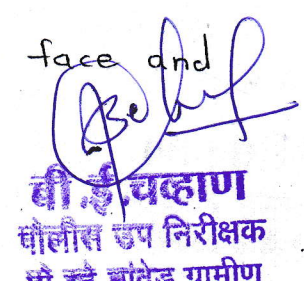 face and
बी.ई.चव्हाण
पोलीस उप निरीक्षक
नांदेड ग्रामीण